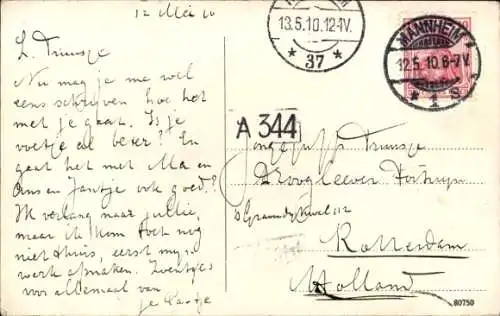 12 Mei 10
L. Truusje
Nu mag je me wel
eens schrijven hoe het
met je gaat. Is je
voetje al beter? En
gaat het met Ma en
Ons en Jantje ook goed?
Ik verlang naar jullie,
maar ik kom toch nog
niet thuis, eerst mijn
werk afmaken. Zoentjes
voor allemaal van
je
13.5.10.12-1V.
* 37 *
MANNHEIM
12.5.10.6-7V.
* 1 S
A 344
Jongejuffr Truusje
Droogleever Fortuyn
112
Rotterdam
Holland
80750